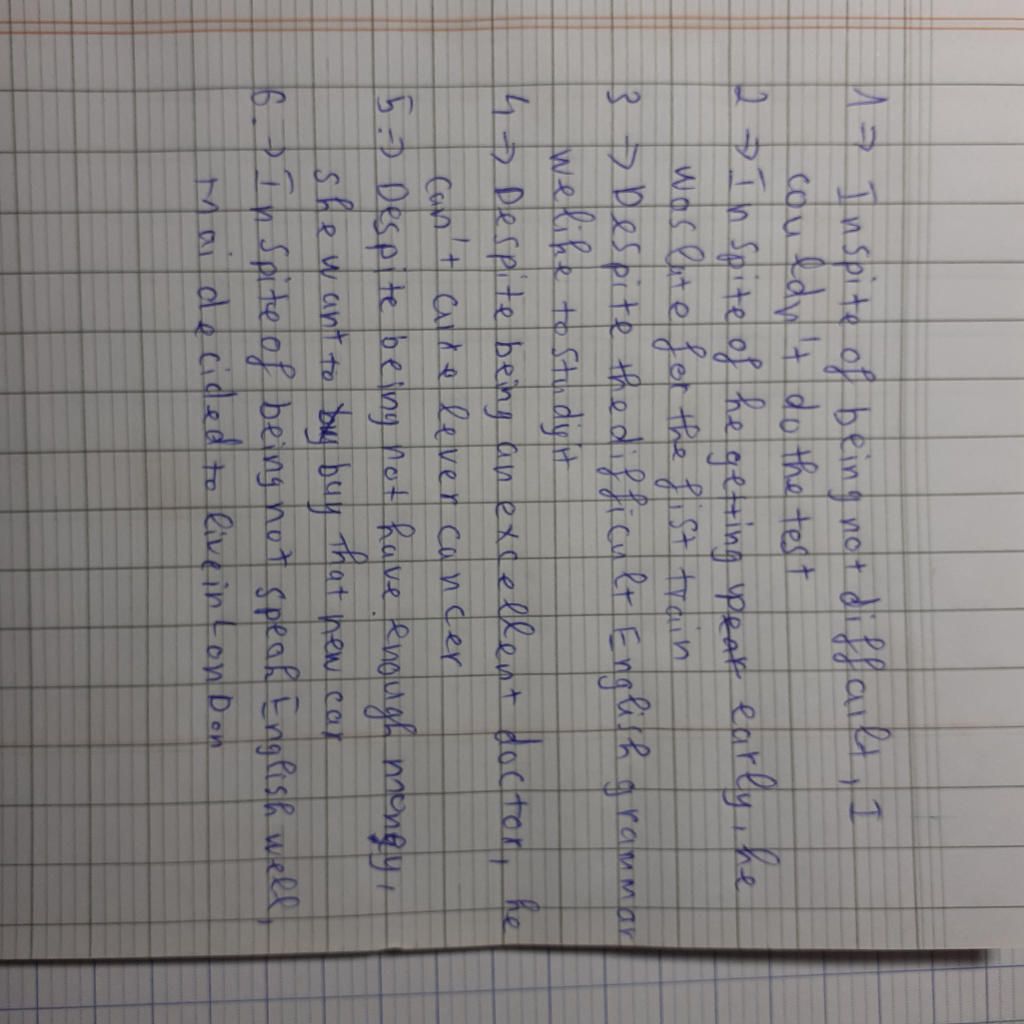 1 => Inspite of being not difficult, I
couldn't do the test
2 => In spite of he getting up early, he
was late for the fist train
3 -> Despite the difficult English grammar
we like to study it
4 -> Despite being an excellent doctor, he
can't cure lever cancer
5 => Despite being not have enough money,
she want to buy that new car
6. -> In spite of being not speak English well,
Mai decided to live in LonDon